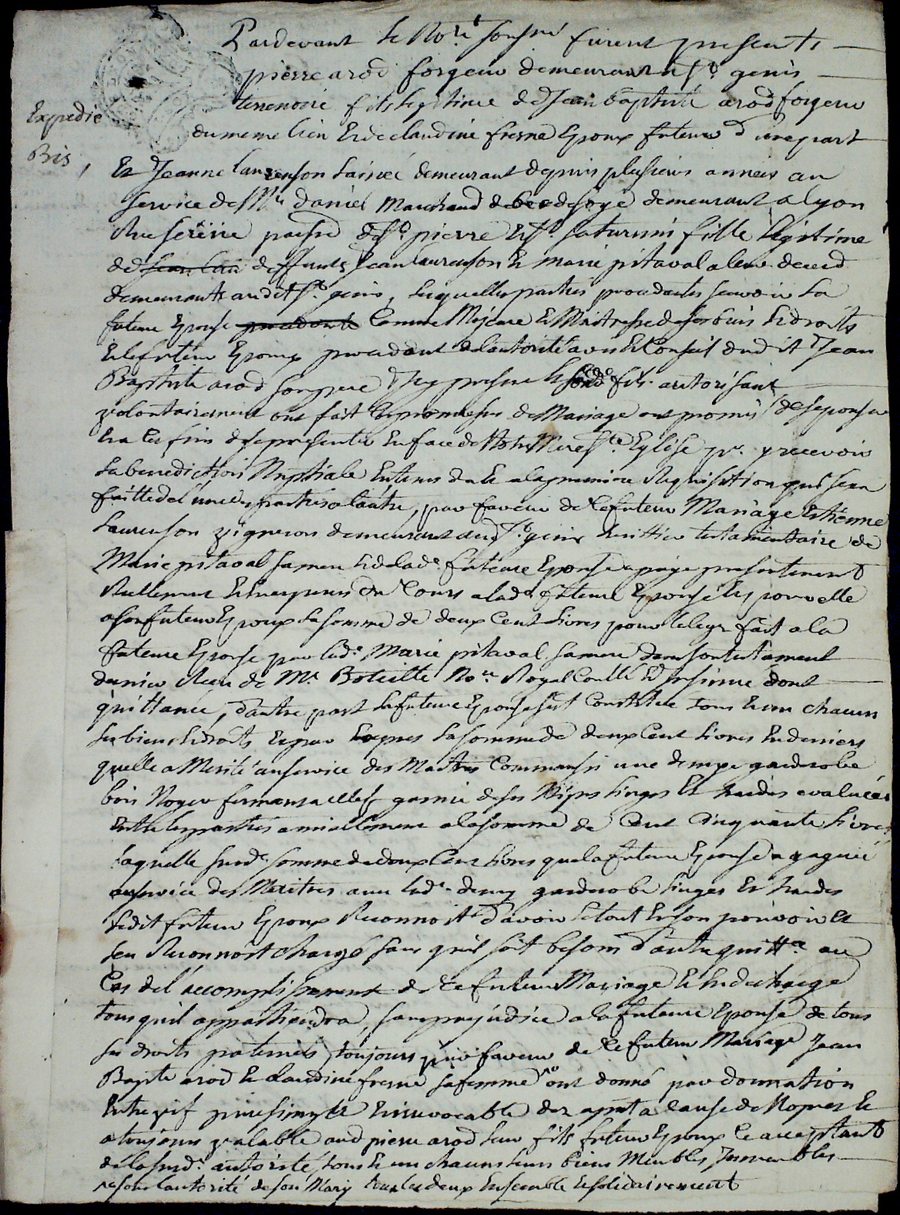 Pardevant le No.re soussiné furent presents
pierre arod forgeur demeurant a St genis
terrenoire fils legitime de Jean baptiste arod forgeur
du meme lieu Et de claudine fresne Epoux futeur d'une part
Expedié
Bis,
Et Jeanne laurenson laineé demeurant depuis plusieurs anneés au
service de Mr daniel Marchand de soye demeurant a lyon
Rue paroisse de St pierre Et St saturnin fille legitime
de deffunts Jean laurenson Et marie pitaval a leur deced
demeurants audit St genis, lesquelles parties procedantes scavoir la
future Epouse procedante Comme Majeure Et Maitresse de ses biens Et droits
Et le futeur Epoux procedant de lautorité avis Et Conseil dudit Jean
Baptiste arod son pere Icy present le fils autorisant
volontairement ont fait les promesses de Mariage ont promis de sepouser
Et a ces fins de se presenter En face de Notre Mere Ste Eglise pr. y recevoir
la benediction Nuptiale a la premiere Requisition qui sera
faitte de l'une des parties a lautre, par faveur de Ce futeur Mariage Estienne
Laurenson vigneron demeurant audt St genis heritier testamentaire de
Marie pitaval sa mere Et de lade futeure Epouse a payé presentement
Reellement Et En Espesses du Cours a lade future Epouse Et pour elle
a son futeur Epoux la somme de deux Cent livres pour le legt fait a la
futeure Epouse par lade Marie pitaval sa mere dans son testament
dernier Receu de Me Boteille No.re Royal dont
quittance, d'autre part la future Epouse sest Constitué tous Et un chacun
ses biens Et droits Et par Exprès la somme de deux Cent livres En deniers
quelle a Merité au service des Maitres Comme aussi une demye garderobe
bois Noyer fermant a clef garnie de ses Nipes linges Et hardes evalueés
Entre les parties amiablement a la somme de Cent Cinquante livres
laquelle susde somme de deux Cent livres que la future Epouse a gagneé
au service des Maitres avec lade demy garderobe linges Et hardes
ledit futeur Epoux Reconnoit d'avoir le tout En son pouvoir Et
sen Reconnoit chargé sans quil soit besoin d'autre quittce au
Cas de l'accomplissement de Ce futeur Mariage Et En decharge
tous quil appartiendra, sans prejudice a la futeure Epouse de tous
ses droits paternels, toujours par faveur de Ce futeur Mariage Jean
Bapte arod Et claudine fresne sa femme ont donné par donnation
Entre vif pure simple Et irrevocable des apresent a cause de Noces Et
a toujours valable aud pierre arod leur fils futeur Epoux Ce acceptant
de la susde autorité tous Et un chacuns leurs biens Meubles Immeubles
sous lautorité de son Mary tous les deux Ensemble Et solidairement